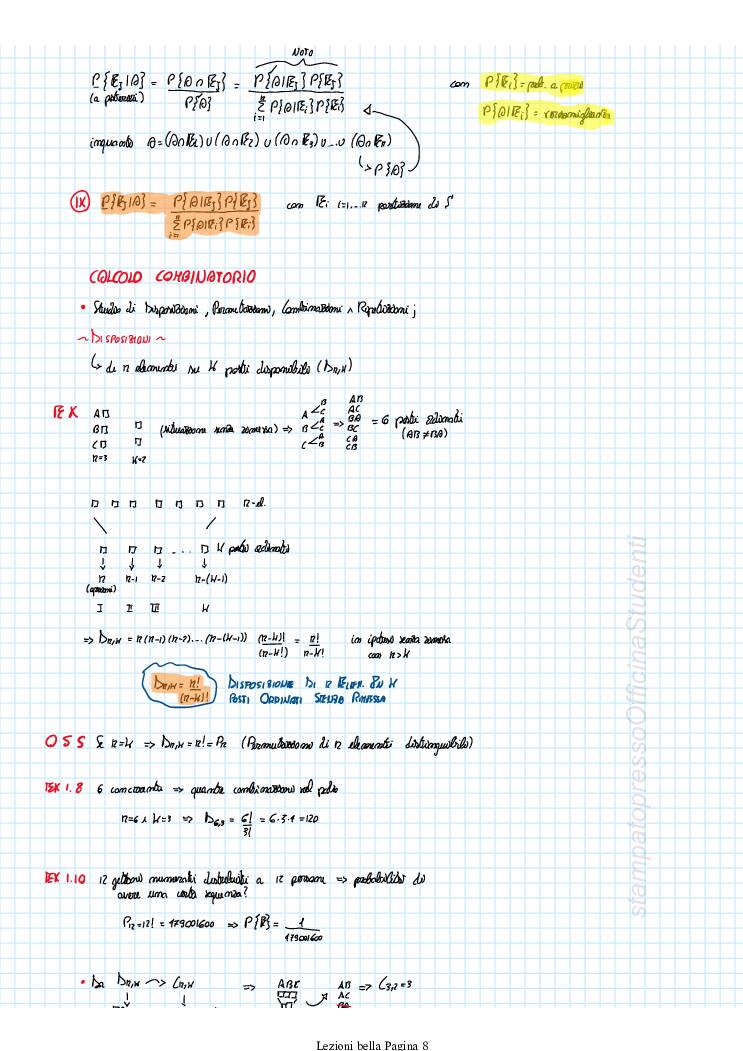 NOTO
P{E_J|A} = P{A∩E_J} / P{A} = P{A|E_J} P{E_J} / Σ_{i=1}^{n} P{A|E_i} P{E_i} con P{E_i} = prob. a priori
(a posteriori) P{A|E_i} = verosimiglianza
inquanto A = (A∩E_1) ∪ (A∩E_2) ∪ (A∩E_3) ∪ ... ∪ (A∩E_n)
↳ P{A}
IX P{E_J|A} = P{A|E_J} P{E_J} / Σ_{i=1}^{n} P{A|E_i} P{E_i} con E_i i=1,...n partizione di S
CALCOLO COMBINATORIO
• Studio di Disposizioni, Permutazioni, Combinazioni ∧ Ripetizioni;
~ DISPOSIZIONI ~
↳ di n elementi su K posti disponibili (D_{n,K})
EX A□ A<B C AB
B□ □ (situazione senza rimessa) => B<A C => AC BA BC = 6 posti ordinati
C□ □ C<A B CA CB (AB≠BA)
n=3 K=2
□ □ □ □ □ □ □ n-el.
□ □ □ ... □ K posti ordinati
↓ ↓ ↓ ↓
n n-1 n-2 n-(K-1)
(opzioni)
I II III K
=> D_{n,K} = n(n-1)(n-2)...(n-(K-1)) (n-K)!/(n-K!) = n!/n-K! in ipotesi senza rimessa
con n>K
D_{n,K} = n!/(n-K)! DISPOSIZIONE DI n ELEM. SU K
POSTI ORDINATI SENZA RIMESSA
OSS Se n=K => D_{n,K} = n! = P_n (Permutazione di n elementi distinguibili)
EX 1.8 6 concorrenti => quante combinazioni sul podio
n=6 ∧ K=3 => D_{6,3} = 6!/3! = 6·5·4=120
EX 1.10 12 gettoni numerati distribuiti a 12 persone => probabilità di
avere una certa sequenza?
P_12=12! = 479001600 => P{E} = 1/479001600
• Da D_{n,K} → C_{n,K} => ABC AB => C_{3,2}=3
AC
BA
stampatopressoOfficinaStudenti
Lezioni bella Pagina 8